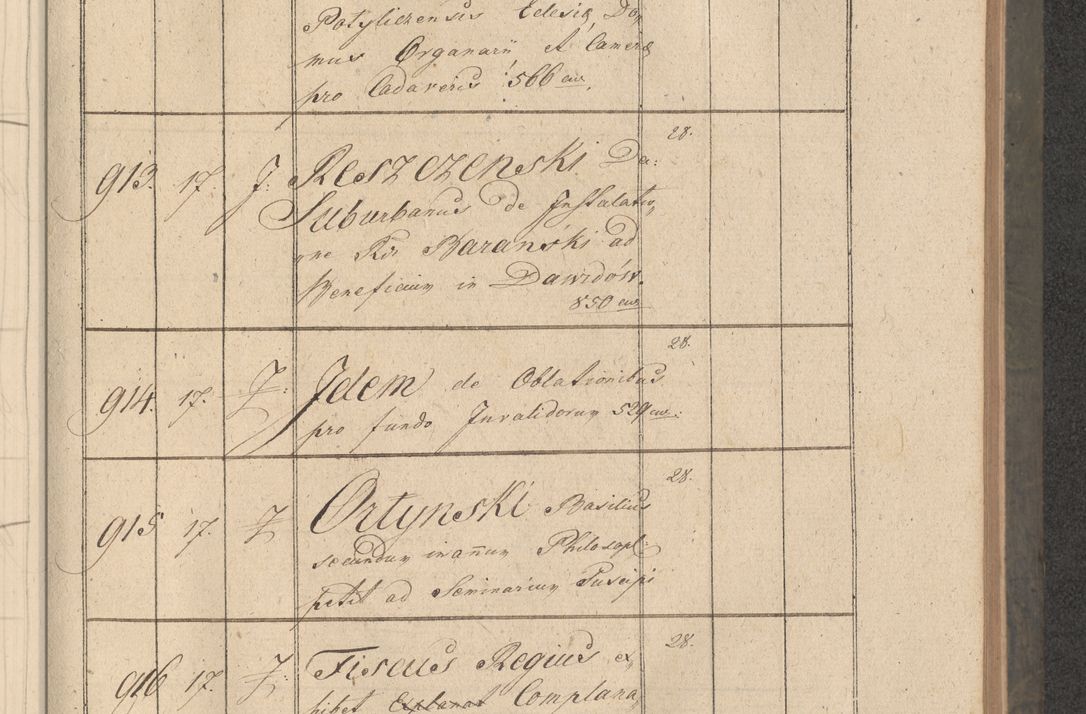 Potyliczensis Eclesiæ Do,
mus Organarii et Cameræ
pro Cadaveris 566 cur.
28.
913. 17. J: Reszczenski De:
Suburbanus de Installatio,
,,ne Rdi Baranski ad
Beneficium in Dawidów.
850 cur
28.
914. 17. J: Idem de Oblationibus
pro fundo Invalidorum 529 cur:
28.
915 17. J Ortynski Basilius
secundum in annum Philosoph:
petit ad Seminarium Suscipi
28.
916 17. J: Fiscus Regius ex,
hibet Complana,